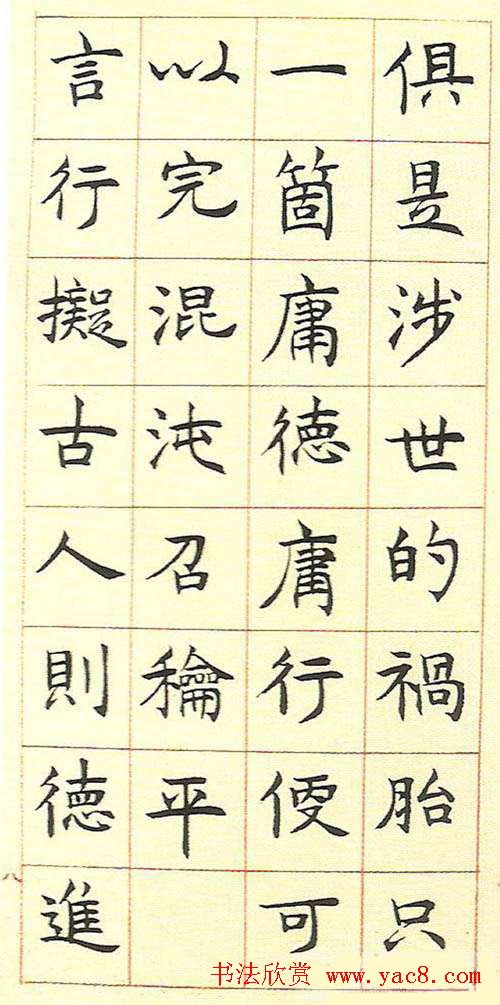 俱是涉世的禍胎只
一箇庸德庸行便可
以完混沌召龢平
言行擬古人則德進
八
书法欣赏 www.yac8.com